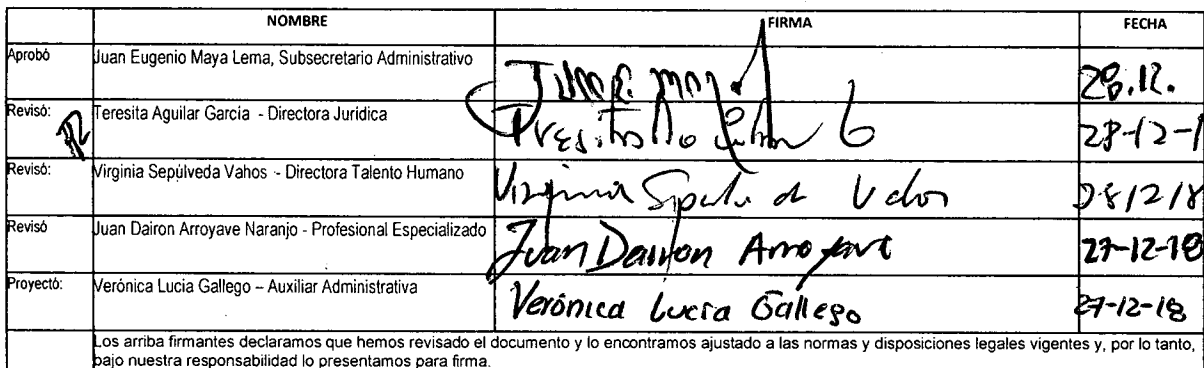 NOMBRE FIRMA FECHA
Aprobó Juan Eugenio Maya Lema, Subsecretario Administrativo 28.12.
Revisó: Teresita Aguilar Garcia - Directora Juridica 28-12-1
Revisó: Virginia Sepúlveda Vahos - Directora Talento Humano Virginia 28/12/18
Revisó Juan Dairon Arroyave Naranjo - Profesional Especializado Juan Dairon Arroyave 27-12-18
Proyectó: Verónica Lucia Gallego – Auxiliar Administrativa Verónica Lucía Gallego 27-12-18
Los arriba firmantes declaramos que hemos revisado el documento y lo encontramos ajustado a las normas y disposiciones legales vigentes y, por lo tanto,
bajo nuestra responsabilidad lo presentamos para firma.